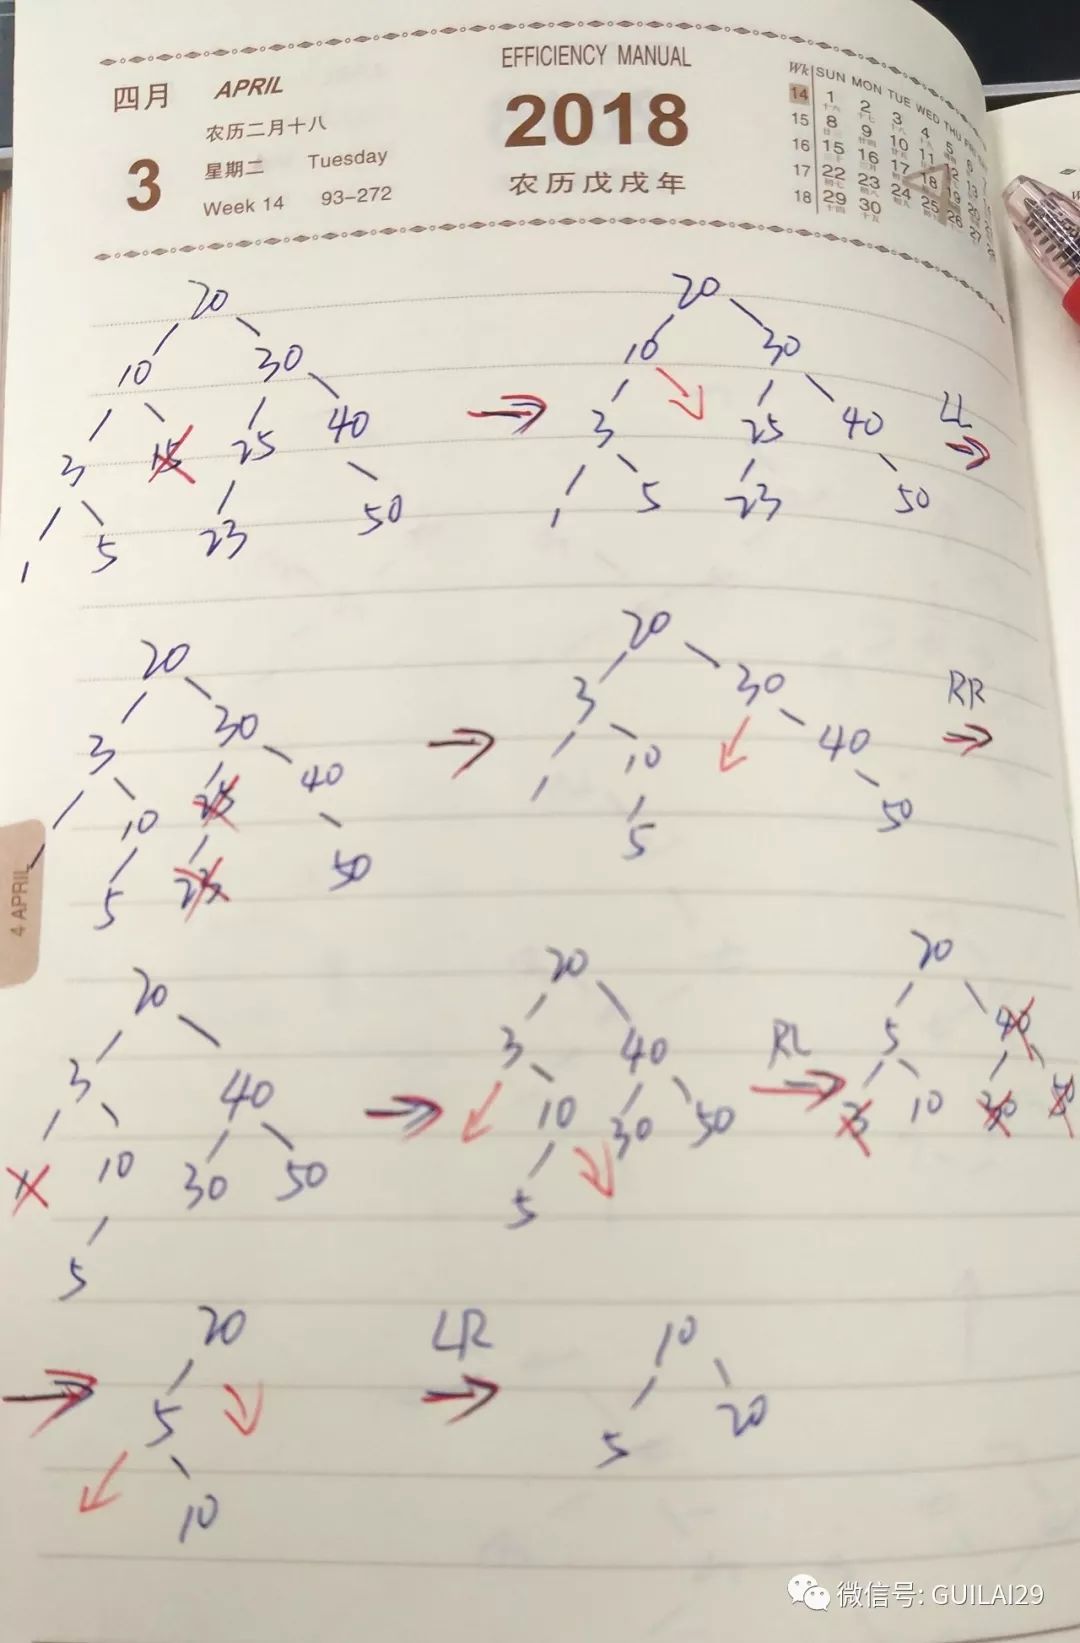 四月 APRIL
农历二月十八
3 星期二 Tuesday
Week 14 93-272
EFFICIENCY MANUAL
2018
农历戊戌年
Wk SUN MON TUE WED THU FRI
14 1 2 3 4 5 6
15 8 9 10 11 12 13
16 15 16 17 18 19 20
17 22 23 24 25 26 27
18 29 30
20
10 30
3 15 25 40
1 5 23 50
20
10 30
3 25 40
1 5 23 50
LL
20
3 30
10 25 40
5 23 50
20
3 30
1 10 40
5 50
RR
20
3 40
1 10 30 50
5
20
3 40
10 30 50
5
RL
20
5 40
3 10 30 50
20
5
10
LR
10
5 20
4 APRIL
微信号: GUILAI29